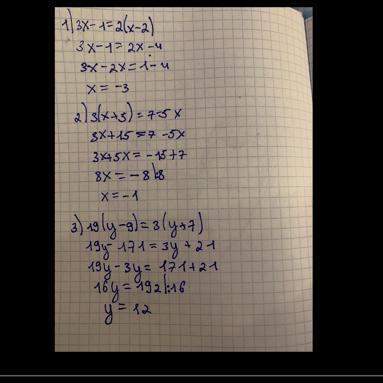 1) 3x-1=2(x-2)
3x-1=2x-4
3x-2x=1-4
x=-3
2) 3(x+5)=7-5x
3x+15=7-5x
3x+5x=-15+7
8x=-8|:8
x=-1
3) 19(y-9)=3(y+7)
19y-171=3y+21
19y-3y=171+21
16y=192|:16
y=12